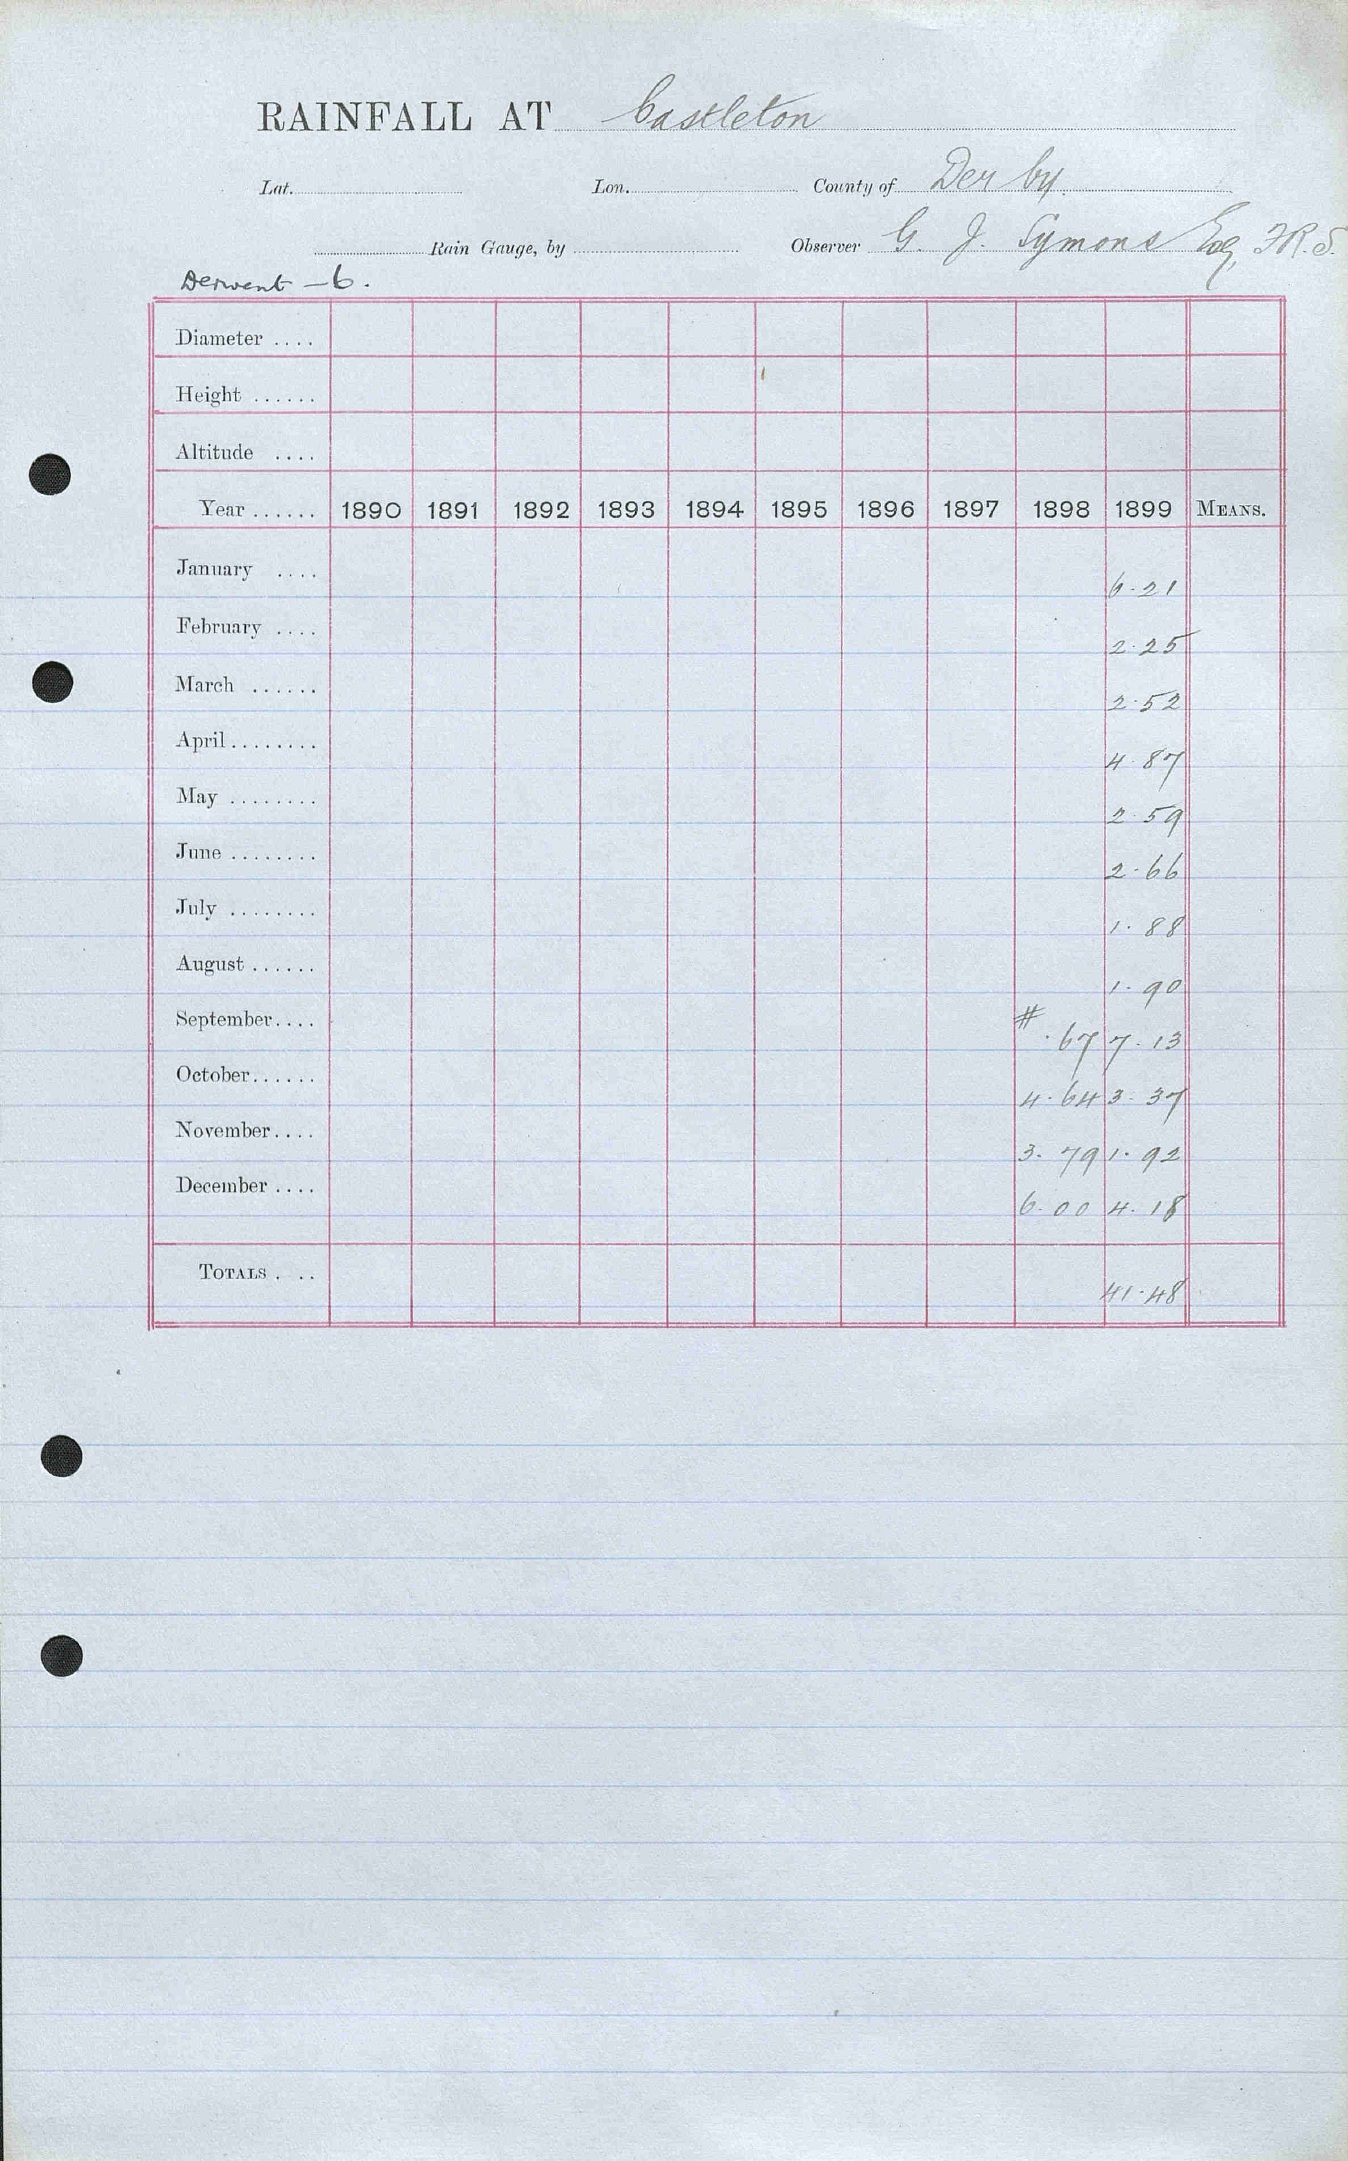 RAINFALL AT Castleton
Lat. Lon. County of Derby.
Rain Gauge, by Observer G. J. Symons Esq, F.R.S.
Derwent – 6.
Diameter ....
Height ......
Altitude ....
Year ...... 1890 1891 1892 1893 1894 1895 1896 1897 1898 1899 MEANS.
January .... 6.21
February .... 2.25
March ...... 2.52
April........ 4.87
May ........ 2.59
June ........ 2.66
July ........ 1.88
August ...... 1.90
September.... # .67 7.13
October...... 4.64 3.37
November.... 3.79 1.92
December .... 6.00 4.18
TOTALS . .. 41.48